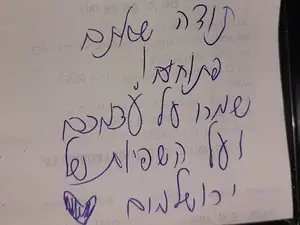 תודה שאתם
פתוחים!
שמרו על עצמכם
ועל השפיות של
ירושלים